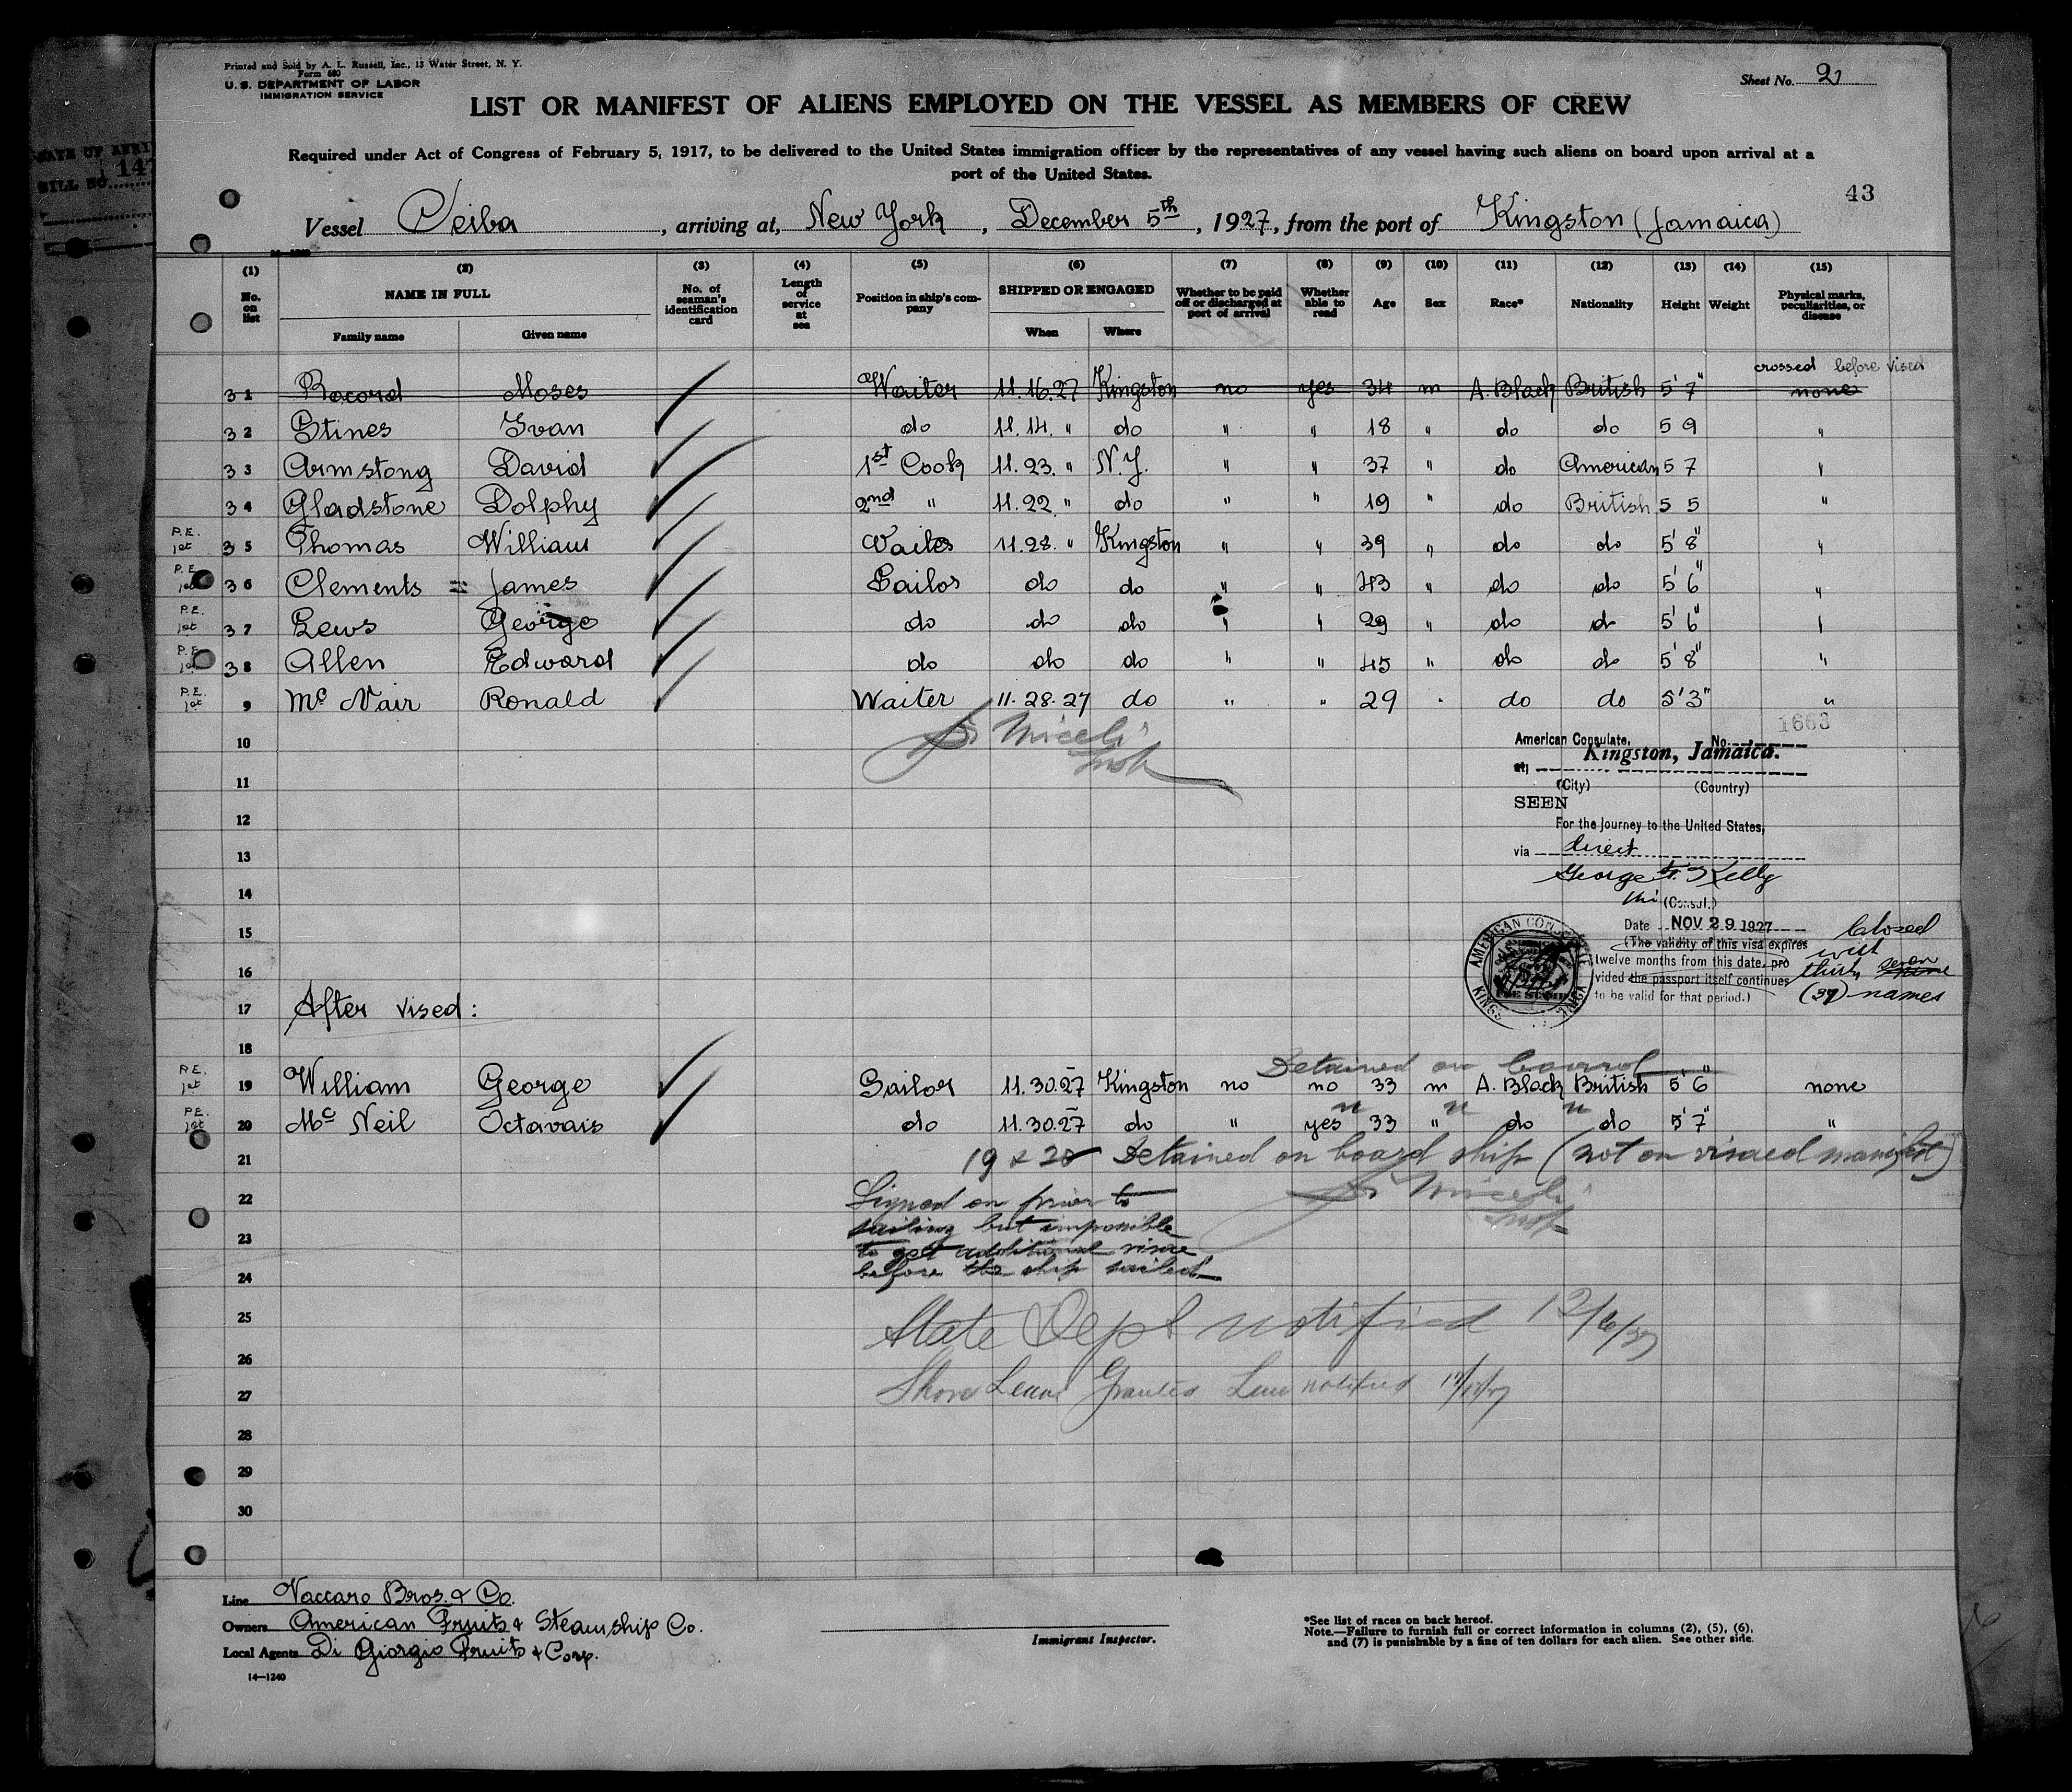 Printed and Sold by A. L. Russell, Inc., 13 Water Street, N. Y.
Form 680
U. S. DEPARTMENT OF LABOR
IMMIGRATION SERVICE
Sheet No. 2
LIST OR MANIFEST OF ALIENS EMPLOYED ON THE VESSEL AS MEMBERS OF CREW
Required under Act of Congress of February 5, 1917, to be delivered to the United States immigration officer by the representatives of any vessel having such aliens on board upon arrival at a
port of the United States.
43
147
BILL NO.
Vessel Ceiba, arriving at, New York, December 5th, 1927, from the port of Kingston (Jamaica)
(1) (2) (3) (4) (5) (6) (7) (8) (9) (10) (11) (12) (13) (14) (15)
No. on list NAME IN FULL No. of seaman's identification card Length of service at sea Position in ship's company SHIPPED OR ENGAGED Whether to be paid off or discharged at port of arrival Whether able to read Age Sex Race* Nationality Height Weight Physical marks, peculiarities, or disease
Family name Given name When Where
crossed before vised
31 Record Moses Waiter 11.16.27 Kingston no yes 34 m A. Black British 5'7" none
32 Stines Ivan do 11.14. " do " " 18 " do do 5 9 "
33 Armstong David 1st Cook 11.23. " N.Y. " " 37 " do American 5 7 "
34 Gladstone Dolphy 2nd " 11.22. " do " " 19 " do British 5 5 "
P.E. 1st 35 Thomas William 11.28. " Kingston " " 39 " do do 5'8" "
P.E. 1st 36 Clements = James Sailor do do " " 43 " do do 5'6" "
P.E. 1st 37 Lews George do do do " " 29 " do do 5'6" "
P.E. 1st 38 Allen Edward do do do " " 45 " do do 5'8" "
P.E. 1st 9 Mc Nair Ronald Waiter 11.28.27 do " " 29 " do do 5'3" "
1663
10 Miceli
Insp
American Consulate, No.
Kingston, Jamaica.
at
11
(City) (Country)
SEEN
12
For the journey to the United States,
13
via direct
14
George F. Kelly
(Consul.)
15
Date NOV 29 1927
(The validity of this visa expires
twelve months from this date, pro
vided the passport itself continues
to be valid for that period.)
AMERICAN CONSULATE
Closed
with
thirty seven
(37) names
16
17 After vised:
18
Detained on board
P.E. 1st 19 William George Sailor 11.30.27 Kingston no no 33 m A. Black British 5'6" none
P.E. 1st 20 Mc Neil Octavais do 11.30.27 do " yes 33 " do do 5'7" "
21 19 & 20 Detained on board ship (not on visaed manifest)
Miceli
Insp
22 Signed on prior to
23 sailing but impossible
to get additional visae
24 before the ship sailed
25 State Dept notified 12/6/27
26
27 Shore Leave Granted Line notified
28
29
30
Line Vaccaro Bros. & Co.
Owners American Fruits & Steamship Co.
Local Agents Di Giorgio Fruits & Corp.
14—1240
Immigrant Inspector.
*See list of races on back hereof.
Note.—Failure to furnish full or correct information in columns (2), (5), (6),
and (7) is punishable by a fine of ten dollars for each alien. See other side.